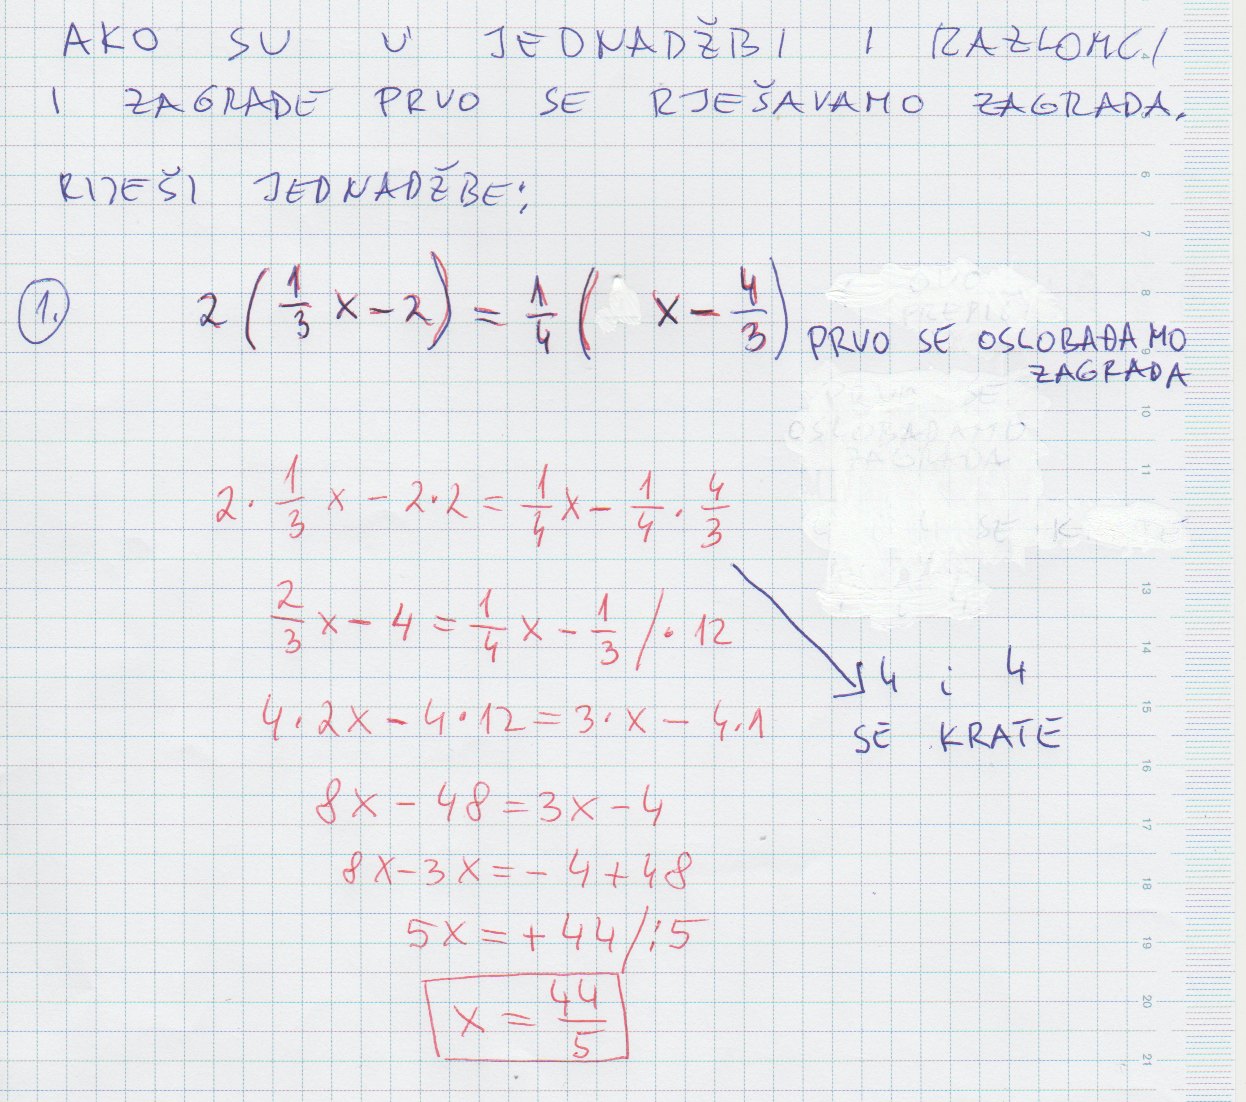 AKO SU U JEDNADŽBI I RAZLOMCI
I ZAGRADE PRVO SE RJEŠAVAMO ZAGRADA.
RIJEŠI JEDNADŽBE:
1. 2(1/3 x - 2) = 1/4( x - 4/3) PRVO SE OSLOBAĐAMO
ZAGRADA
2·1/3 x - 2·2 = 1/4 x - 1/4 · 4/3
2/3 x - 4 = 1/4 x - 1/3 /·12
4 i 4
SE KRATE
4·2x - 4·12 = 3·x - 4·1
8x - 48 = 3x - 4
8x - 3x = - 4 + 48
5x = + 44 /:5
x = 44/5
6
7
8
9
10
11
13
14
15
16
17
18
19
20
21